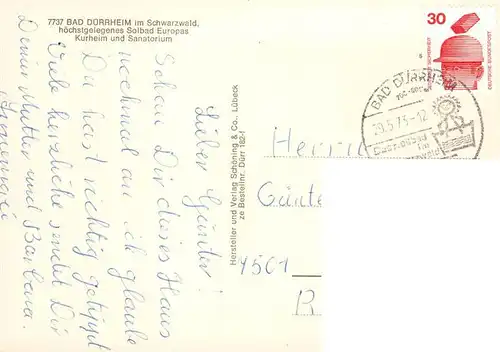 7737 BAD DÜRRHEIM im Schwarzwald,
höchstgelegenes Solbad Europas
Kurheim und Sanatorium
Lieber Günter!
Schau Dir dieses Haus
nochmal an ich glaube
Du hast richtig getippt
Viele herzliche sendet Dir
Deine Mutter und Barbara.
Hersteller und Verlag Schöning & Co., Lübeck
ze Bestellnr. Dürr 182-f
30
DEUTSCHE BUNDESPOST
BAD DÜRRHEIM
.5.73-12
Herrn
Günte
4501
R